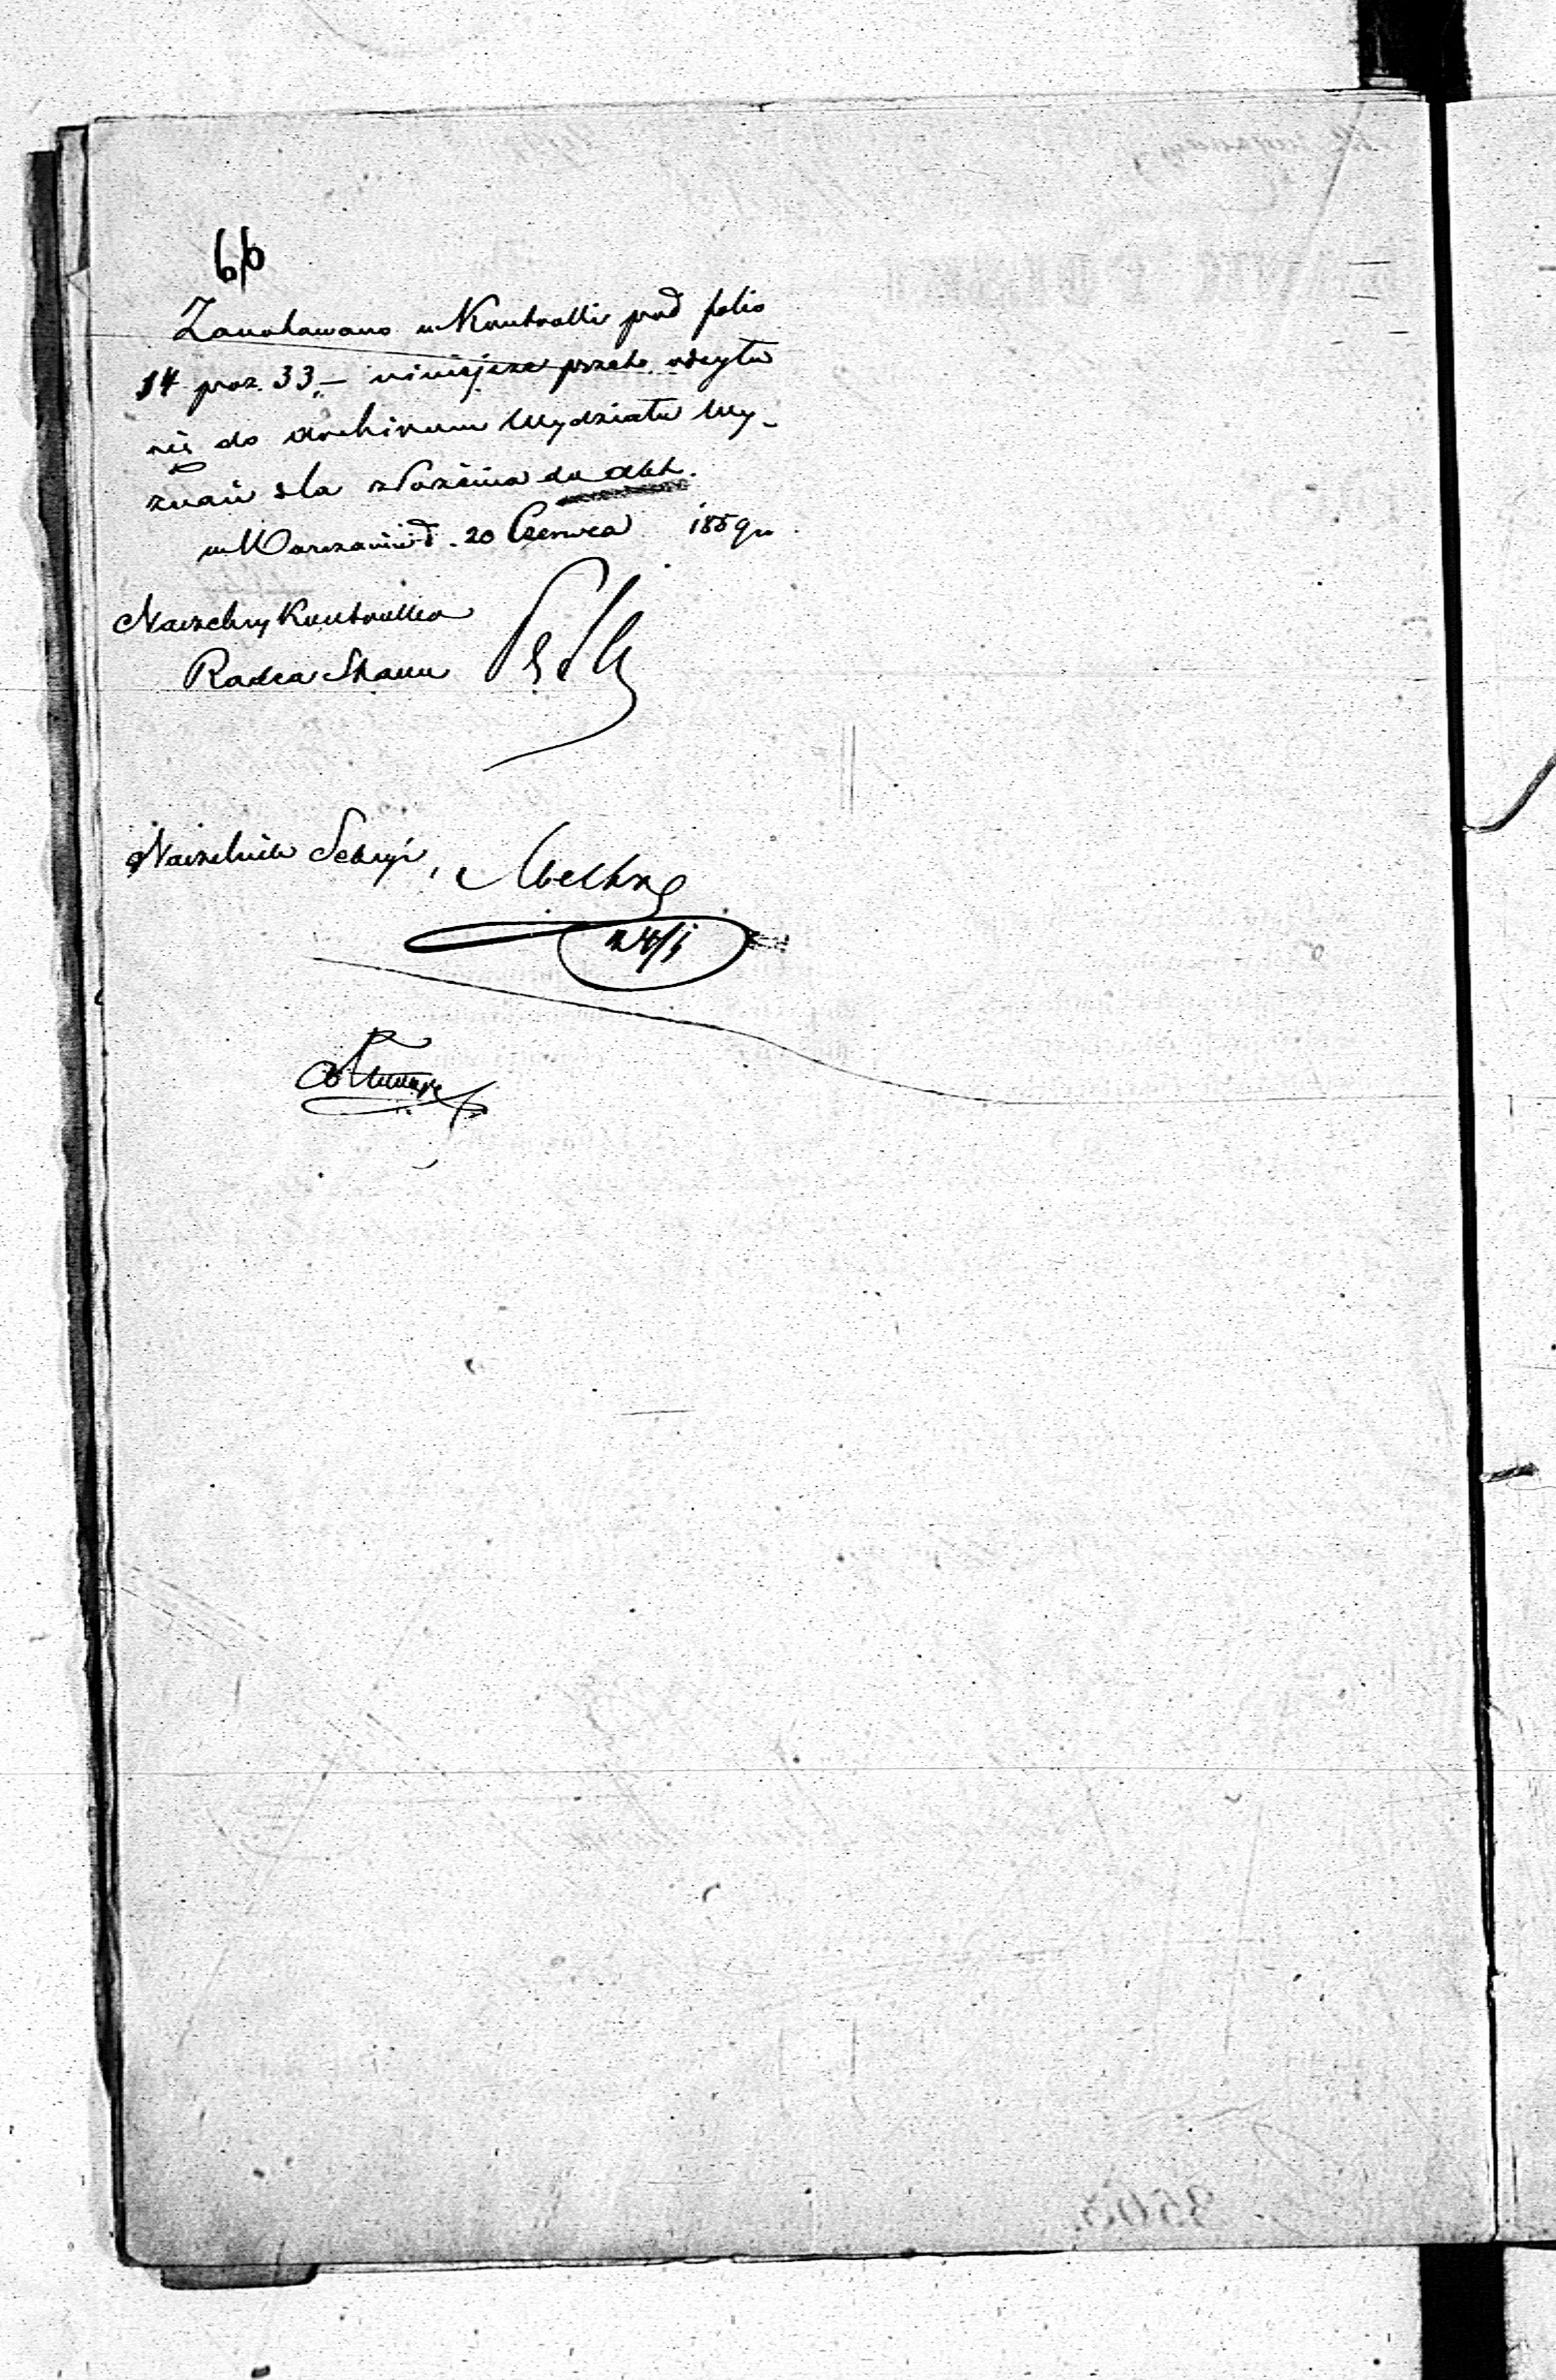 66
Zanotowano w Kontrolli pod folio
14 poz. 33 – niniejsze przeto odsyła
się do Archiwum Wydziału Wy-
znań dla złożenia do akt.
w Warszawie d. 20 Czerwca 1859 r.
Naczelny Kontroller
Radca Stanu
Naczelnik Sekcyi,